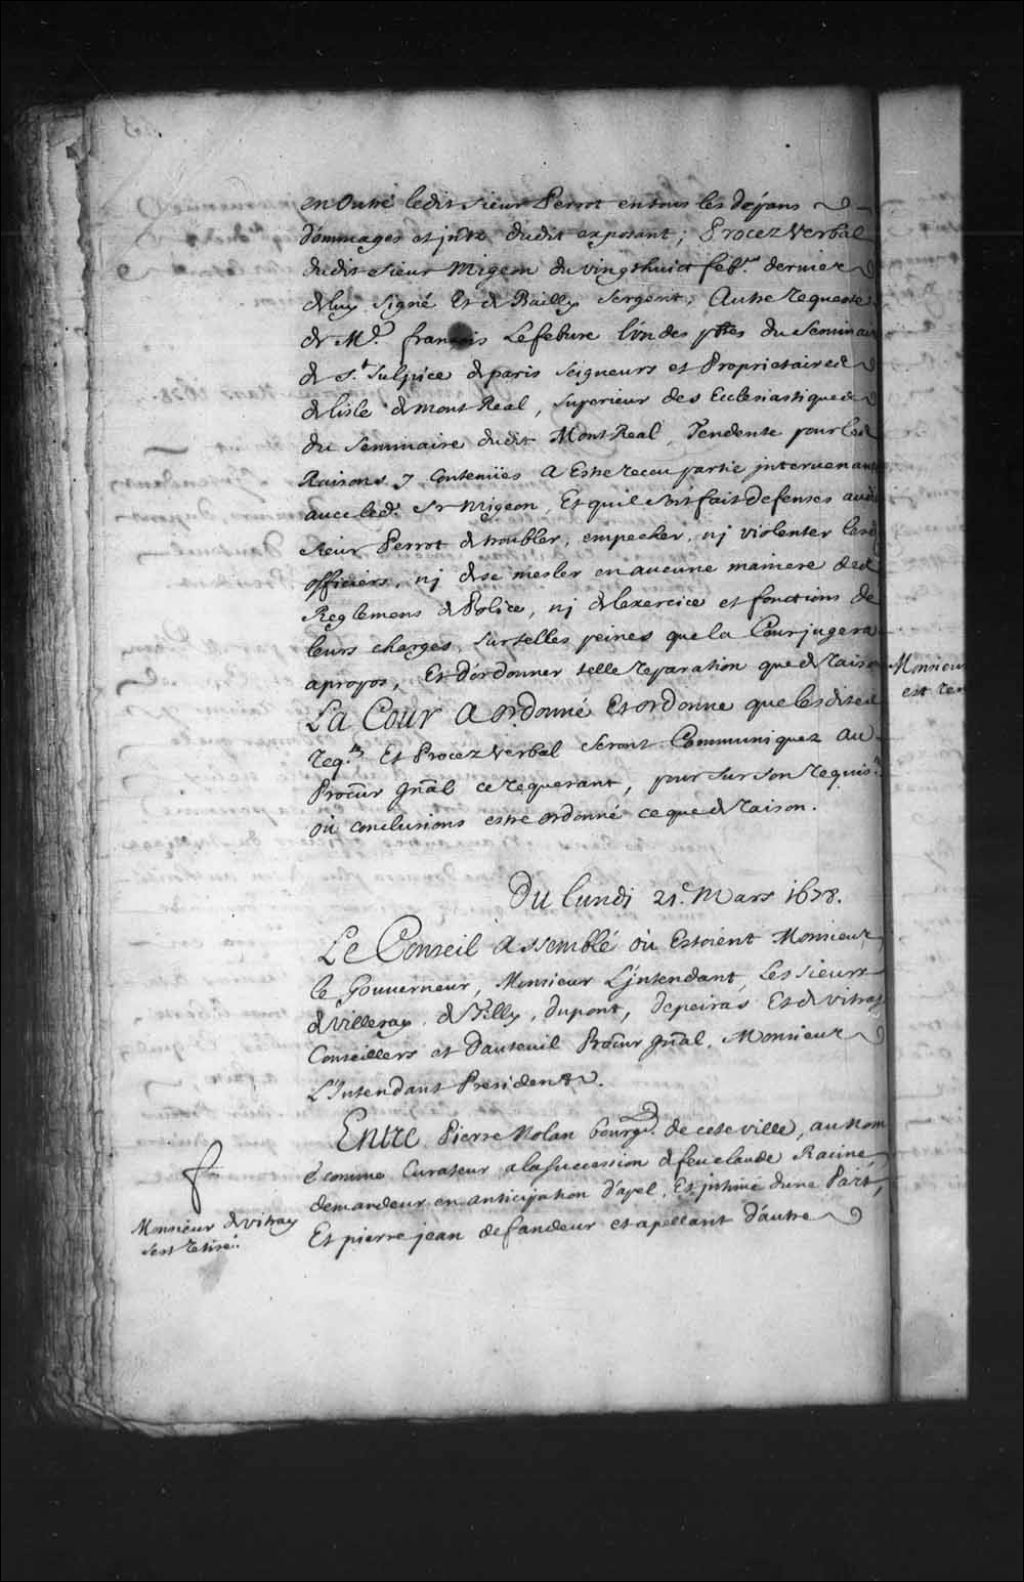 en Outre ledit sieur Perrot en tous les dépans
dommages et jntz dudit exposant; Procez Verbal
dudit sieur Migeon du vingt huict feb.er dernier
de luy signé Et de Bailly sergent; Autre requeste
de M.e francois Lefebure l'un des ptres du Seminaire
de s.t Sulpice de paris seigneurs et Proprietaires
de lisle de Mont Real, superieur des Ecclesiastiques
du seminaire dudit Mont Real, Tendente pour les
Raisons y contenües a Estre receu partie jntervenante
avec led. sr Migeon, Et quil soit fait defenses audit
sieur Perrot de troubler, empecher, nj violenter lesd
officiers, nj de se mesler en aucune maniere des
Reglemens de Police, nj de lexercice et fonctions de
leurs charges, sur telles peines que la Cour jugera
apropos, Et d'ordonner telle reparation que de raison
La Cour a ordonné Et ordonne que lesdites
req.tes Et Procez verbal seront Communiquez au
Procur gnãl ce requerant, pour sur son requis.re
ou conclusions estre ordonné ce que de raison.
Du lundi 21.e Mars 1678.
Le Conseil assemblé où Estoient Monsieur
le Gouverneur, Monsieur L'jntendant, Les sieurs
de Villeray, de Tilly, dupont, depeiras Et de vitray
Conseillers et dauteuil Procur gnãl, Monsieur
L'Intendant President.
Entre Pierre Nolan bourg.s de cete ville, au nom
& comme Curateur a la succession de feu claude Racine
demandeur en anticipation d'apel, Et jntimé dune Part,
Et pierre jean defandeur et apellant d'autre
Monsieur de vitray
sest retiré.
Monsieur
est re